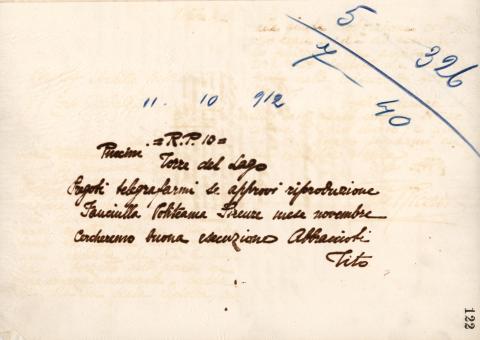 5
7
326
40
11. 10 912
=R.P.10=
Puccini Torre del Lago
Pregoti telegrafarmi se approvi riproduzione
Fanciulla Politeama Firenze mese novembre
Cercheremo buona esecuzione Abbraccioti
Tito
122